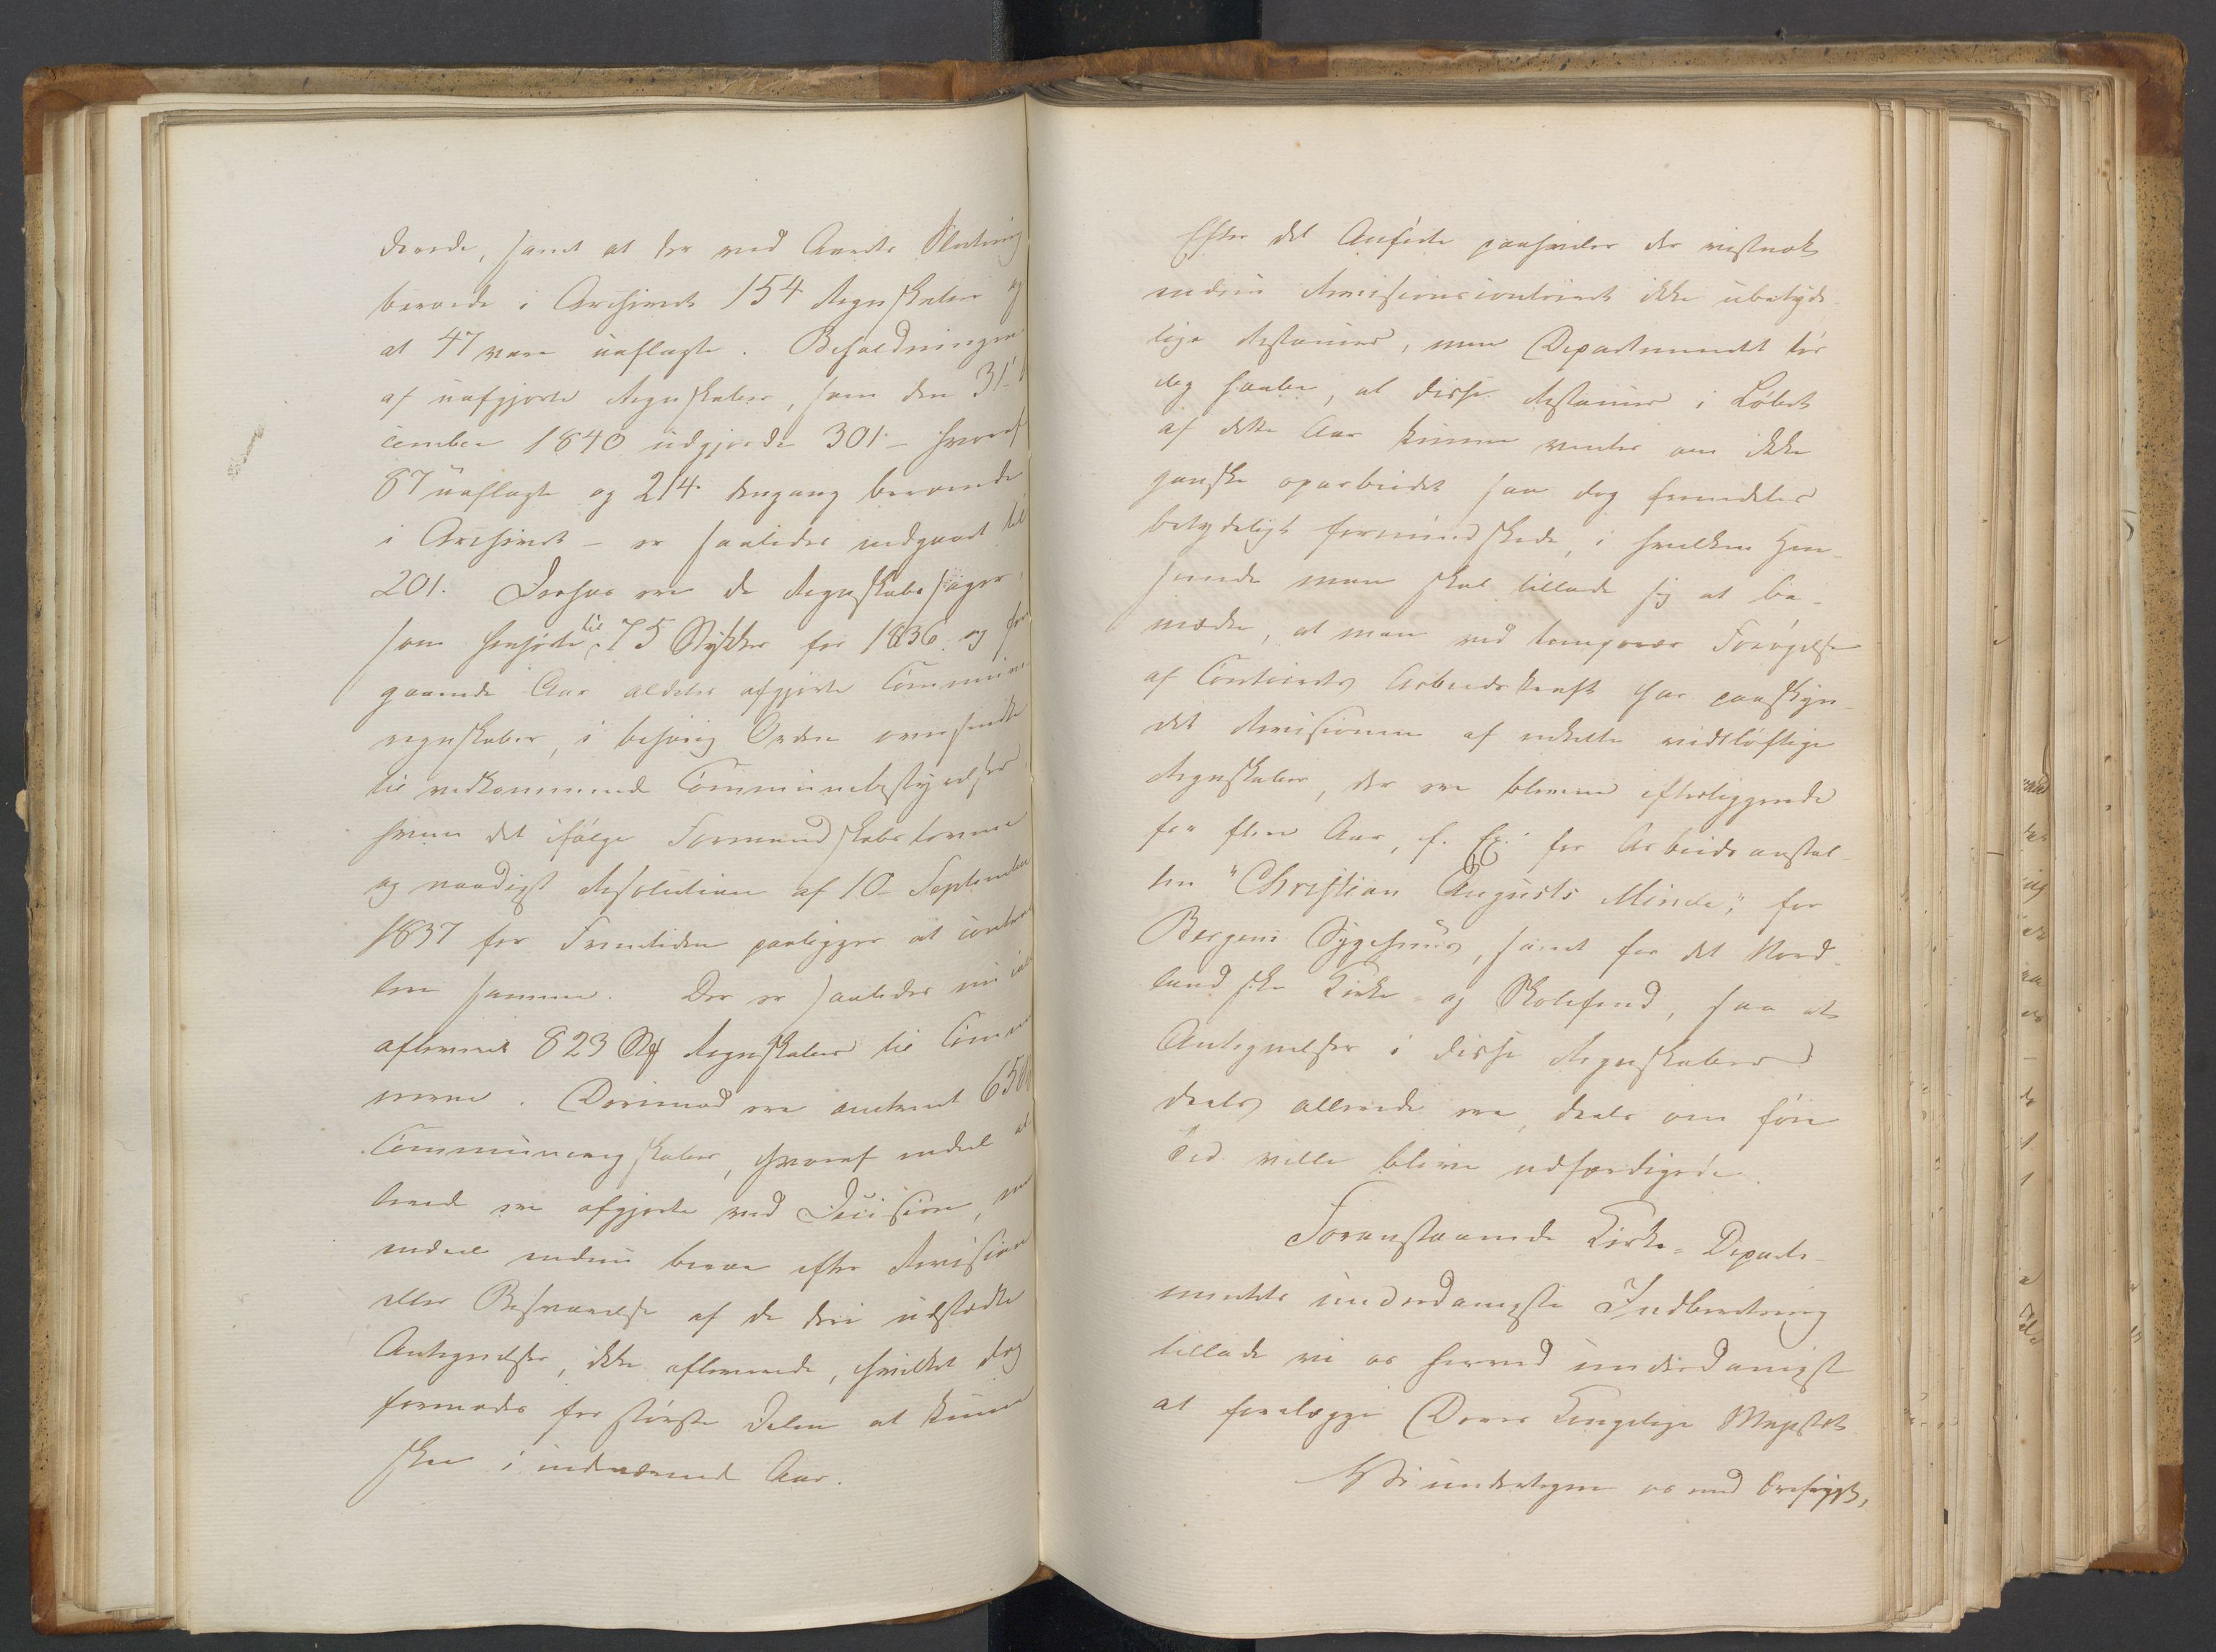 derede, samt at der ved Aarets Slutning
beroede i Archivet 154 Regnskaber og
at 47 vare uaflagte. Beholdningen
af uafgjorte Regnskaber, som den 31
cember 1840 udgjorde 301 – hvoraf
87 uaflagte og 214 dengang beroende
i Archivet – er saaledes nedgaaet til
201. Derhos ere de Regnskabssager,
som henhørte til 75 Stykker for 1836 og for
gaaende Aar aldeles afgjorte Commune
regnskaber, i behørig Orden oversendte
til vedkommende Communebestyrelser
hvem det ifølge Formandskabslovene
og naadigst Resolution af 10 September
1837 for Fremtiden paaligger at
samme. Der er saaledes nu
afleveret 823 St Regnskaber til Com
munerne. Derimod ere omtrent 650
Communeregnskaber, hvoraf endeel al
lerede ere afgjorte ved Decision, men
endeel endnu beroe efter Revision
eller Besvarelse af de deri udstedte
Antegnelser, ikke afleverede, hvilket dog
formodes for største Delen at kunne
skee i indeværende Aar.
Efter det Anførte paahviler der vistnok
endnu Revisionscontoiret ikke ubetyde
lige Restancer, men Departementet tør
dog haabe, at disse Restancer i Løbet
af dette Aar kunne vorde om ikke
ganske oparbeidet saa dog fremdeles
betydeligt formindskede, i hvilken Hen-
seende man skal tillade sig at be-
mærke, at man ved temporær Forøgelse
af Contoirets Arbeidskraft har paaskyn-
det Revisionen af enkelte vidtløftige
Regnskaber, der ere blevne efterliggende
for flere Aar, f. Ex. for Arbeidsanstal-
ten "Christian Augusts Minde", for
Bergens Sygehuus, samt for det Nord-
landske Kirke- og Skolefond, saa at
Antegnelser i disse Regnskaber
deels allerede ere, deels om føie
Tid ville blive udfærdigede.
Foranstaaende Kirke-Departe-
mentets underdanigste Indberetning
tillade vi os herved underdanigst
at forelægge Deres Kongelige Majestæt
Vi undertegne os med Ærefrygt,